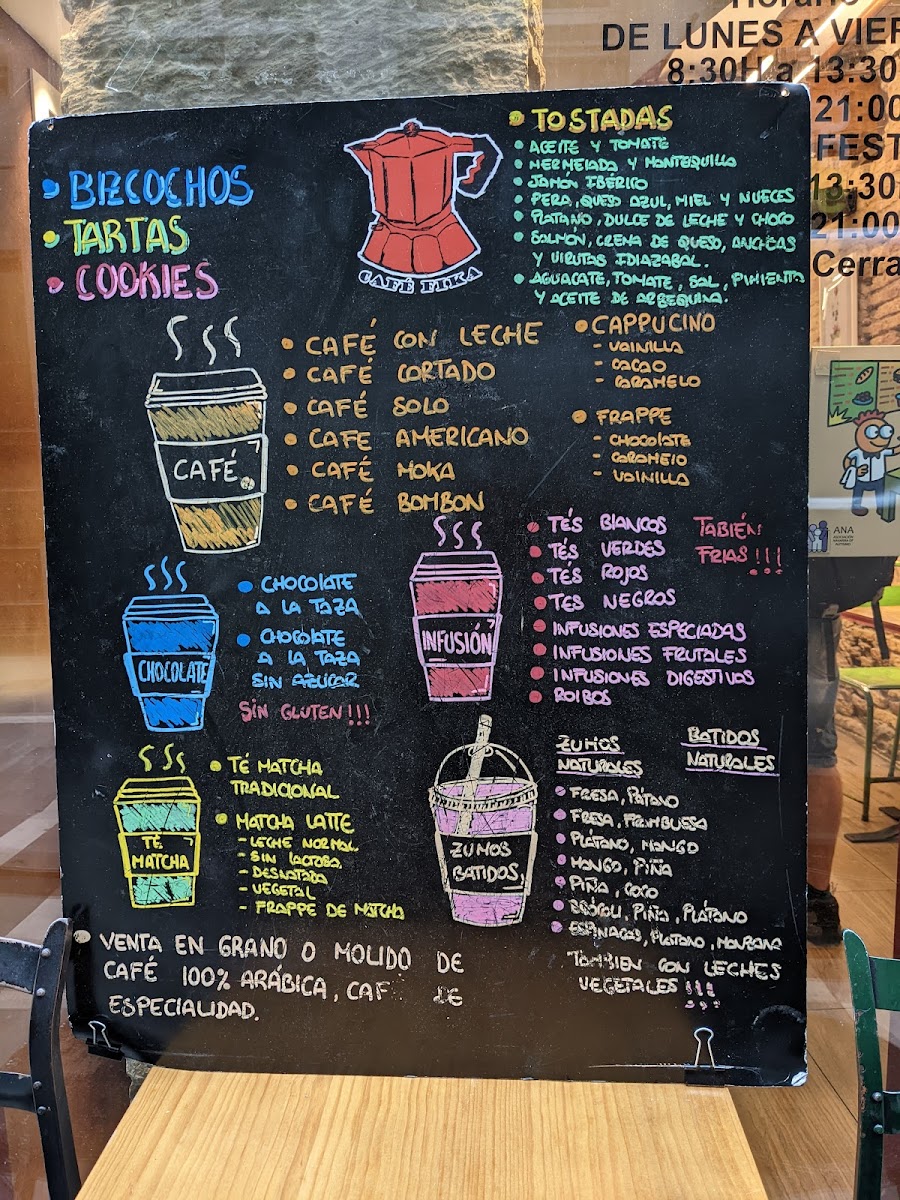 Horario
DE LUNES A VIER
8:30H a 13:30
21:00
FEST
13:30
21:00
Cerra
BIZCOCHOS
TARTAS
COOKIES
CAFÉ FIKA
TOSTADAS
ACEITE Y TOMATE
MERMELADA Y MANTEQUILLA
JAMÓN IBÉRICO
PERA, QUESO AZUL, MIEL Y NUECES
PLÁTANO, DULCE DE LECHE Y CHOCO
SALMÓN, CREMA DE QUESO, ANCHOAS
Y VIRUTAS IDIAZABAL.
AGUACATE, TOMATE, SAL, PIMIENTA
Y ACEITE DE ARBEQUINA.
CAFÉ
CAFÉ CON LECHE
CAFÉ CORTADO
CAFÉ SOLO
CAFE AMERICANO
CAFÉ MOKA
CAFÉ BOMBON
CAPPUCINO
- VAINILLA
- CACAO
- CARAMELO
FRAPPE
- CHOCOLATE
- CARAMELO
- VAINILLA
CHOCOLATE
CHOCOLATE
A LA TAZA
CHOCOLATE
A LA TAZA
SIN AZUCAR
SIN GLUTEN!!!
INFUSIÓN
TÉS BLANCOS
TÉS VERDES
TÉS ROJOS
TES NEGROS
INFUSIONES ESPECIADAS
INFUSIONES FRUTALES
INFUSIONES DIGESTIVAS
ROIBOS
TABIÉN
FRIAS!!!
TÉ
MATCHA
TÉ MATCHA
TRADICIONAL
MATCHA LATTE
- LECHE NORMAL
- SIN LACTOSA
- DESNATADA
- VEGETAL
- FRAPPE DE MATCHA
ZUMOS
BATIDOS
ZUMOS
NATURALES
BATIDOS
NATURALES
FRESA, PÁTANO
FRESA, FRAMBUESA
PLÁTANO, MANGO
MANGO, PIÑA
PIÑA, COCO
BRÓCOLI, PIÑA, PLÁTANO
ESPINACAS, PLATANO, MANZANA
TAMBIEN CON LECHES
VEGETALES!!!
VENTA EN GRANO O MOLIDO DE
CAFÉ 100% ARÁBICA, CAF DE
ESPECIALIDAD.
ANA